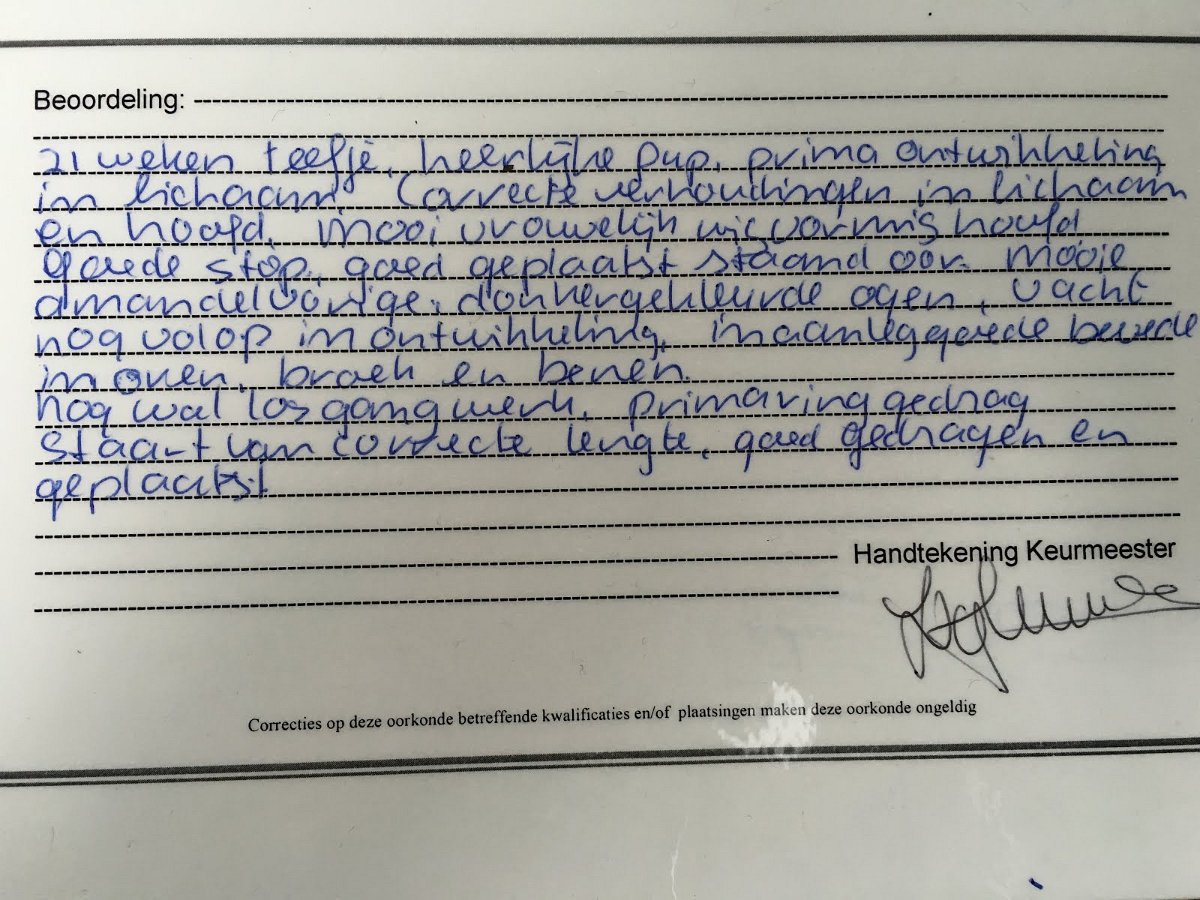 Beoordeling:
21 weken teefje, heerlijke pup, prima ontwikkeling
in lichaam. Correcte verhoudingen in lichaam
en hoofd. Mooi vrouwelijk wigvormig hoofd
Goede stop, goed geplaatst staand oor. Mooie
amandelvormige, donkergekleurde ogen, vacht
nog volop in ontwikkeling, in aanleg goede
in oren, broek en benen.
nog wat los gangwerk. Prima ringgedrag
Staart van correcte lengte, goed gedragen en
geplaatst
Handtekening Keurmeester
Correcties op deze oorkonde betreffende kwalificaties en/of plaatsingen maken deze oorkonde ongeldig